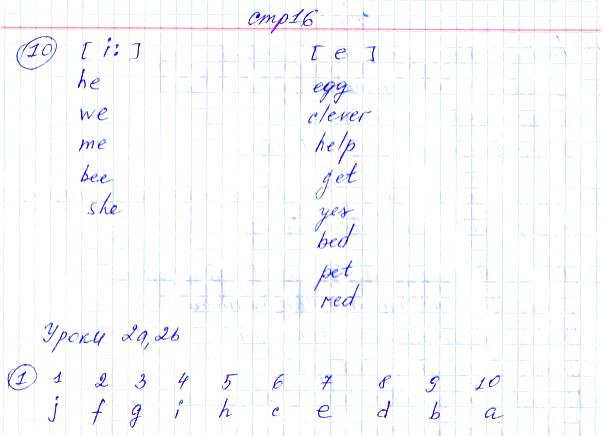 стр16
10 [ i: ] [ e ]
he egg
we clever
me help
bee get
she yes
bed
pet
red
Уроки 2a, 2b
1 1 2 3 4 5 6 7 8 9 10
j f g i h c e d b a